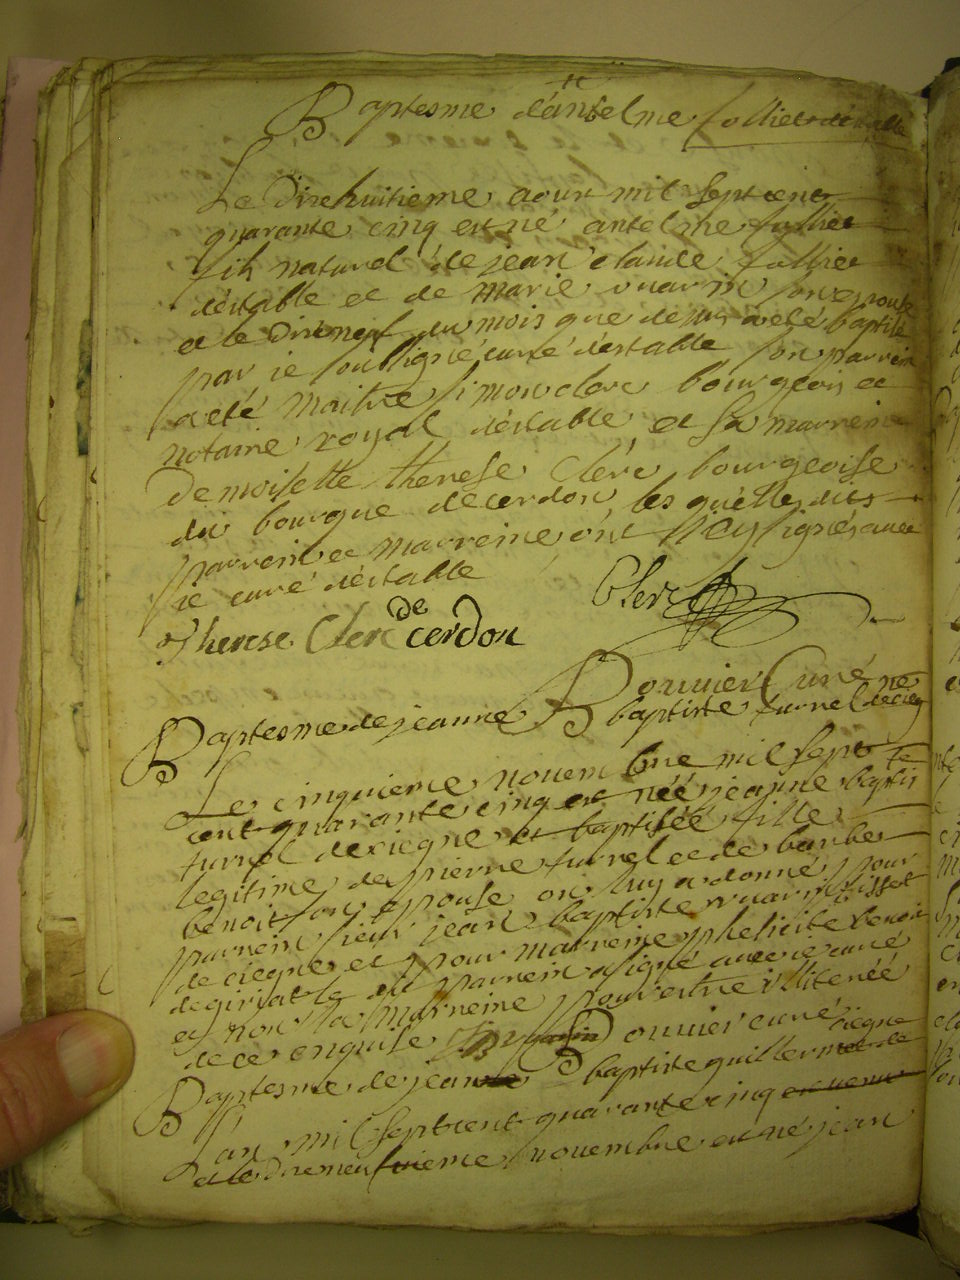 Baptesme d'antelme folliet
Le Dixehuitieme aoust mil septcent
quarante cinq est né antelme follier
fils naturel de jean claude follier
d'estable et de marie vuarin son epouse
et le Dixneuf du mois que dessus a eté baptisé
par je soussigné curé destable son parrein
a eté maitre simon clerc bourgeois et
notaire royal d'estable et sa marreine
Demoiselle therese Clerc bourgeoise
du bourgue de cerdon les quelles dits
parrein et marreine ont signés avec
je curé d'estable
Clerc
Therese Clerc de cerdon
Bouvier Curé
Baptesme de jeanne baptiste turrel de ciegne
Le cinquieme novembre mil sept
cent quarante cinq est néé jeanne baptiste
turrel de ciegne et baptisée fille
legitime de pierre turrel et de barbe
benoit son epouse on luy a donné pour
parrein sieur jean baptiste vuarin
de ciegne et pour marreine phelicite benoit
de giriat le dit parrein a signé avec je curé
et non la marreine pour estre illiteréé
de ce enquise
Bouvier curé
Baptesme de jean baptiste guillermet de ciegne
L'an mil septcent quarante cinq
et le Dixneufvieme novembre est né jean